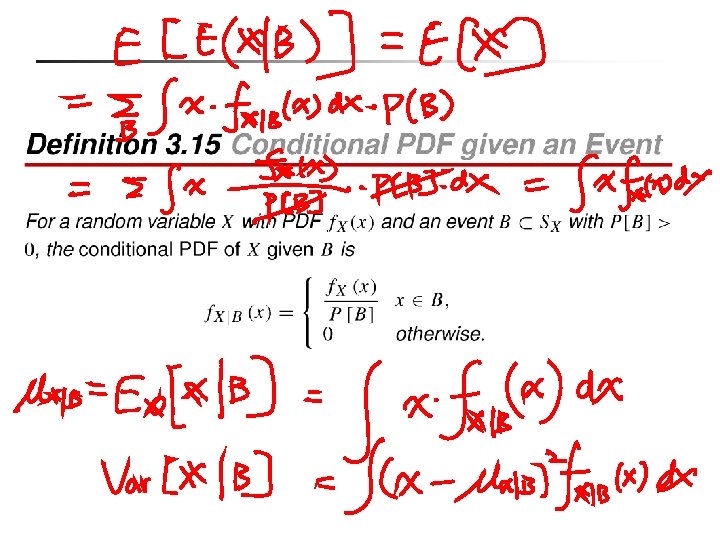 E[E(X|B)] = E[X]
= Σ_B ∫ x · f_{X|B}(x) dx · P(B)
Definition 3.15 Conditional PDF given an Event
= Σ ∫ x f_X(x) / P[B] · P[B] · dx = ∫ x f_X(x) dx
For a random variable X with PDF f_X(x) and an event B ⊂ S_X with P[B] >
0, the conditional PDF of X given B is
f_{X|B}(x) = { f_X(x) / P[B] x ∈ B,
0 otherwise.
μ_{X|B} = E[X|B] = ∫ x · f_{X|B}(x) dx
Var[X|B] = ∫(x − μ_{X|B})² f_{X|B}(x) dx